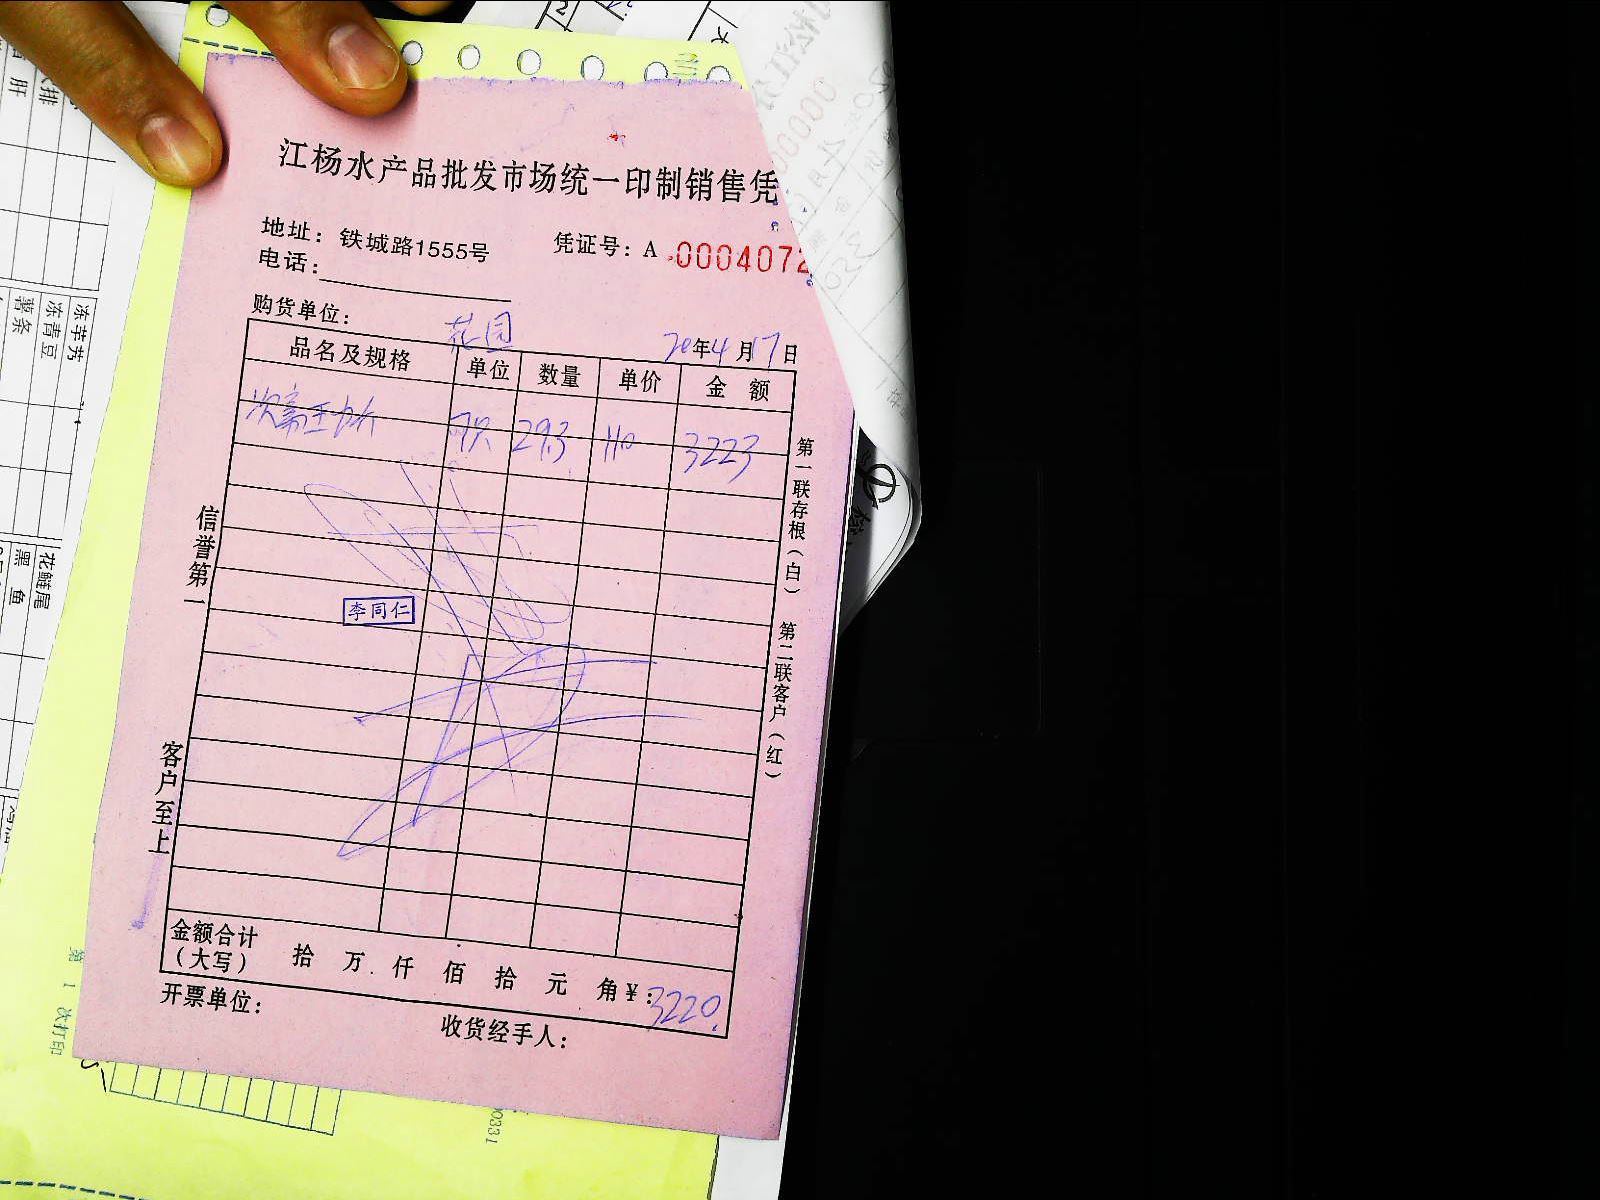 江杨水产品批发市场统一印制销售凭
地址：铁城路1555号
凭证号：A 0004072
电话：
购货单位：
花园
20年4月17日
品名及规格 单位 数量 单价 金 额
7只 29.3 110 3223
李同仁
信誉第一
客户至上
第一联存根（白） 第二联客户（红）
金额合计（大写） 拾 万 仟 佰 拾 元 角 ¥：3220.
开票单位：
收货经手人：
冻芋艿
冻青豆
薯条
花鲢尾
黑鱼
第 1 次打印